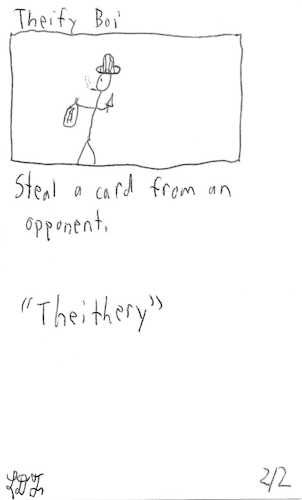 Theify Boi
Steal a card from an
opponent.
"Theithery"
2/2